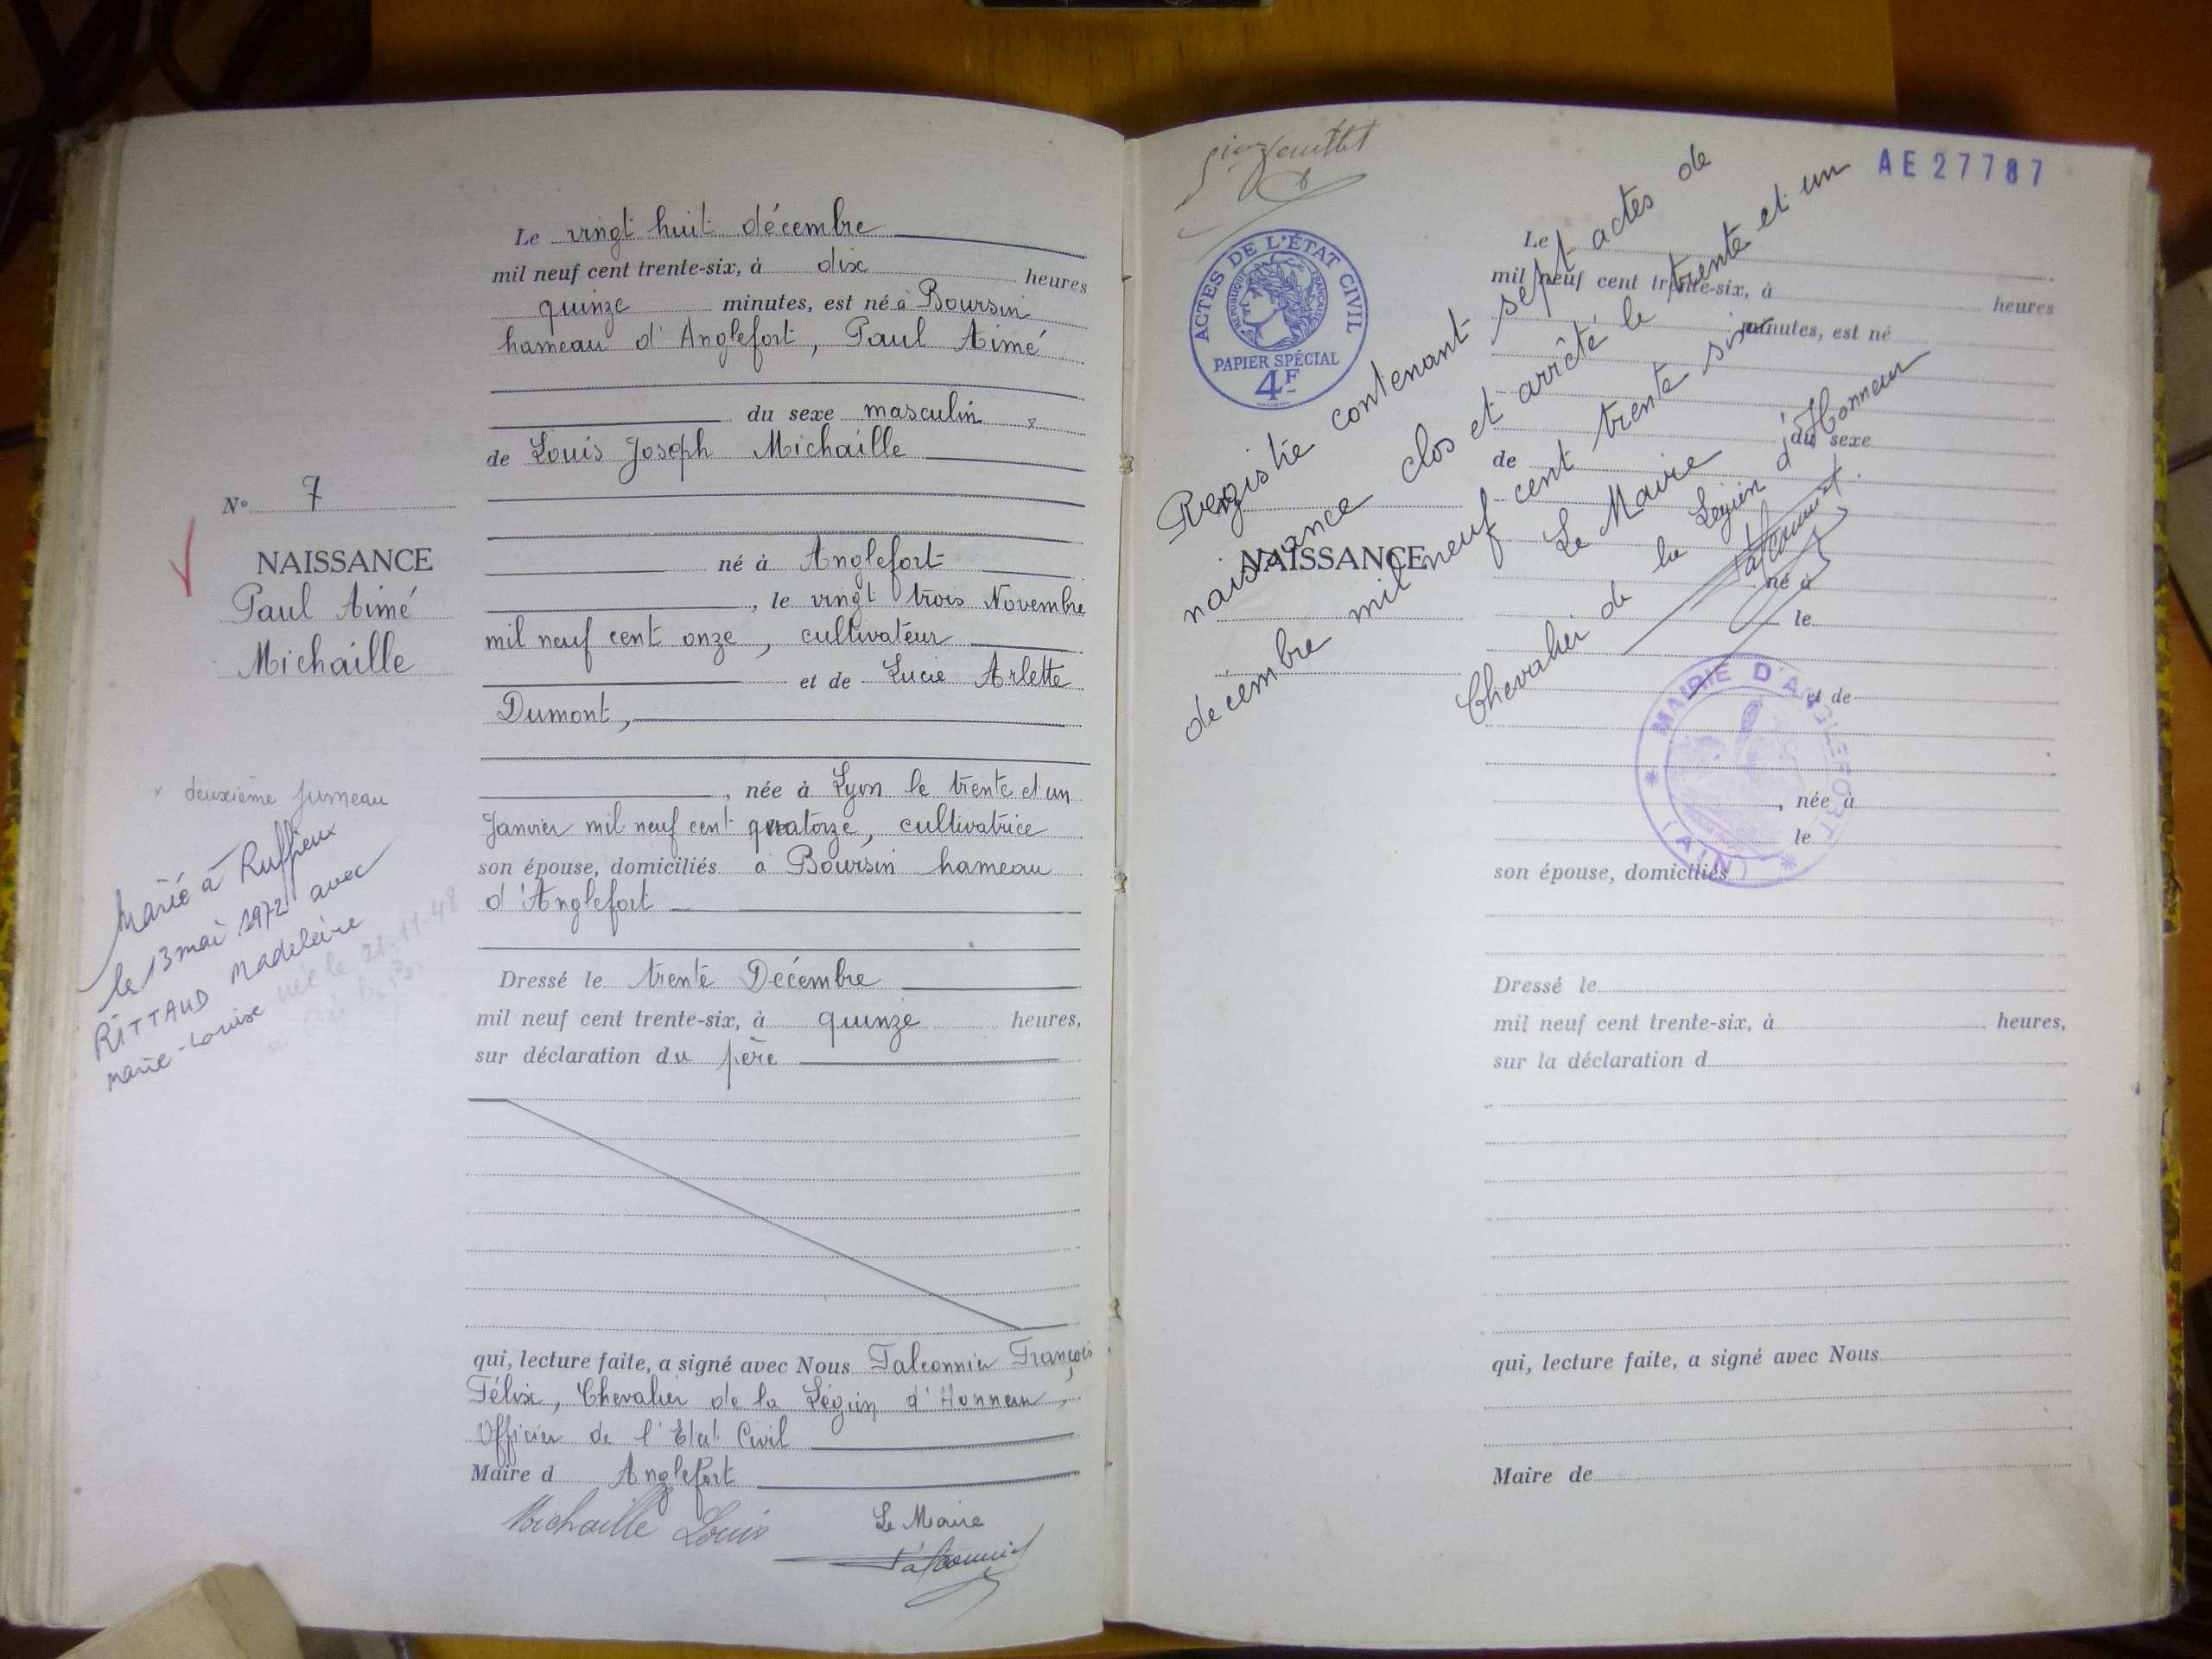 Le vingt huit décembre
mil neuf cent trente-six, à dix heures
quinze minutes, est né à Boursin
hameau d'Anglefort, Paul Aimé
du sexe masculin
de Louis Joseph Michaille
N° 7
NAISSANCE
Paul Aimé
Michaille
né à Anglefort
, le vingt trois Novembre
mil neuf cent onze, cultivateur
et de Lucie Arlette
Dumont,
, née à Lyon le trente et un
Janvier mil neuf cent quatorze, cultivatrice
son épouse, domiciliés à Boursin hameau
d'Anglefort
deuxième jumeau
Marié à Ruffieux
le 13 mai 1972 avec
RITTAUD Madeleine
Marie-Louise née le 21-11-48
Dressé le trente Décembre
mil neuf cent trente-six, à quinze heures,
sur déclaration du père
qui, lecture faite, a signé avec Nous Falconnier François
Félix, Chevalier de la Légion d'Honneur,
Officier de l'Etat Civil
Maire d Anglefort
Michaille Louis
Le Maire
Falconnier
feuillet
AE 27787
ACTES DE L'ÉTAT CIVIL
RÉPUBLIQUE FRANÇAISE
PAPIER SPÉCIAL
4F
Registre contenant sept actes de
naissance clos et arrêté le trente et un
décembre mil neuf cent trente six
Le Maire
Chevalier de la Légion d'Honneur
Falconnier
MAIRIE D'ANGLEFORT
(AIN)
Le
mil neuf cent trente-six, à heures
minutes, est né
du sexe
de
NAISSANCE
né à
le
et de
, née à
le
son épouse, domiciliés
Dressé le
mil neuf cent trente-six, à heures,
sur la déclaration d
qui, lecture faite, a signé avec Nous
Maire de